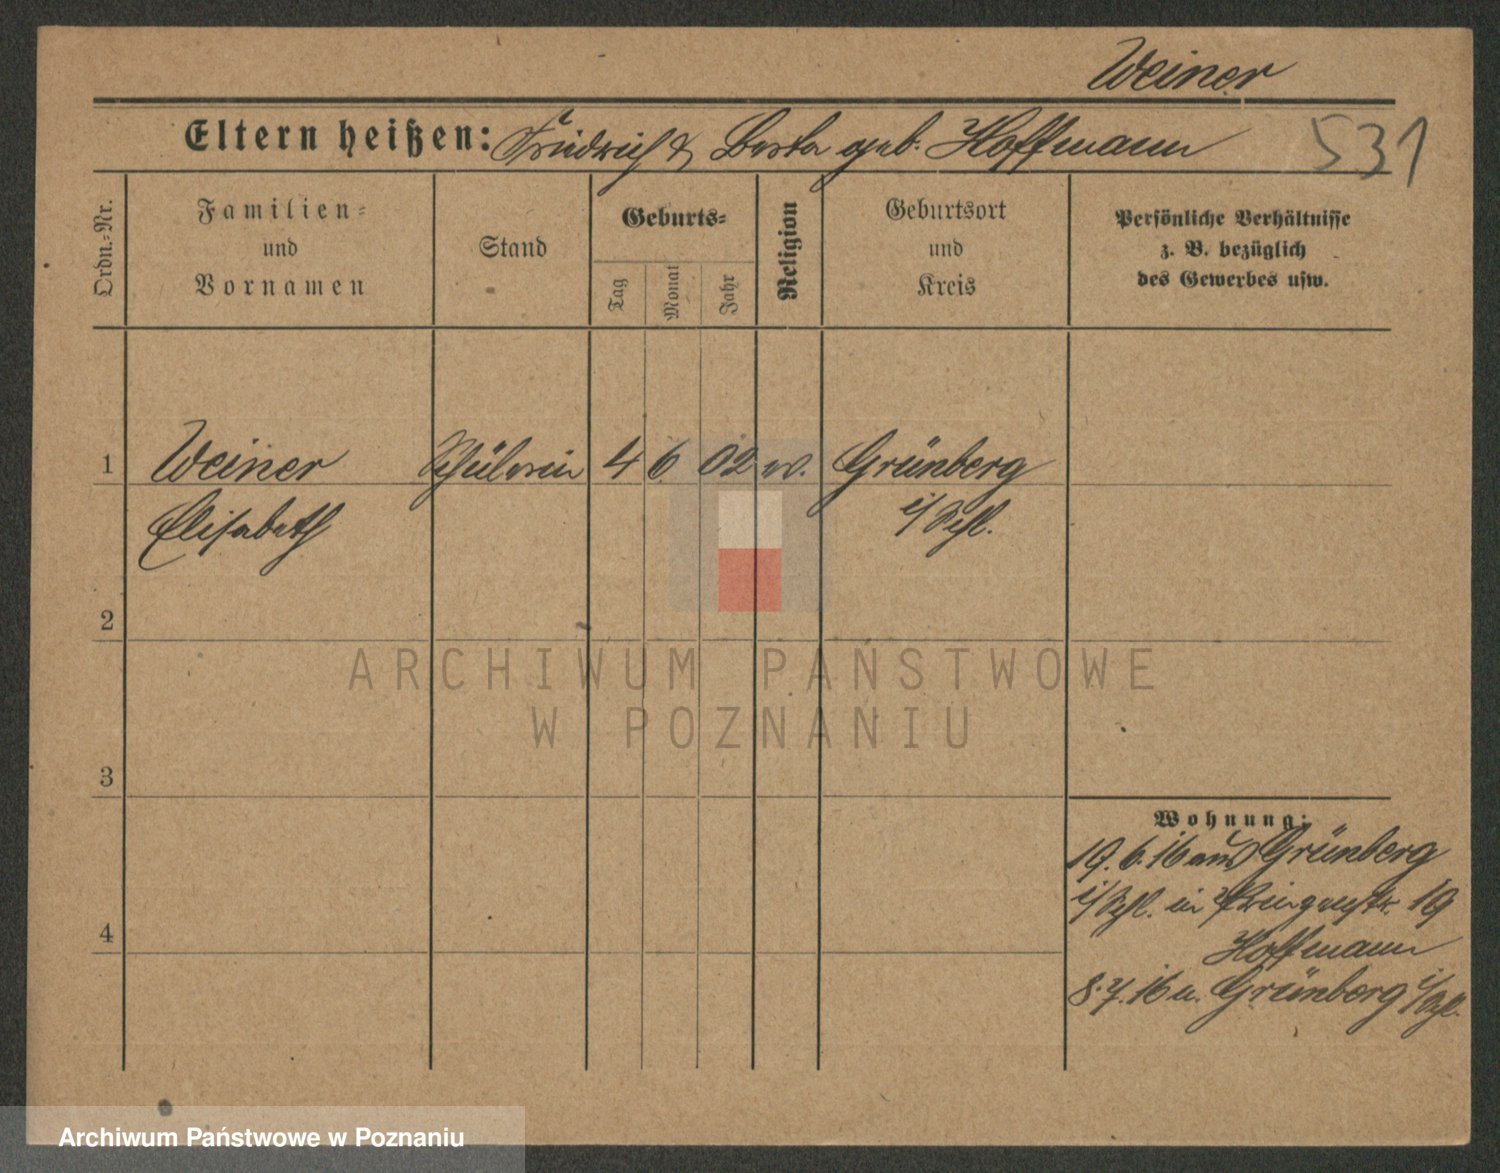 Weiner
Eltern heißen: Friedrich & Berta geb. Hoffmann 531
Ordn.-Nr.
Familien-
und
Vornamen
Stand
Geburts-
Tag
Monat
Jahr
Religion
Geburtsort
und
Kreis
Persönliche Verhältnisse
z. B. bezüglich
des Gewerbes usw.
1 Weiner Schülerin 4 6 02 ev. Grünberg
Elisabeth i/Schl.
2
3
4
ARCHIWUM PAŃSTWOWE
W POZNANIU
Wohnung:
19.6.16 aus Grünberg
i/Schl. in 19
Hoffmann
8.7.16 n. Grünberg i/Schl.
Archiwum Państwowe w Poznaniu